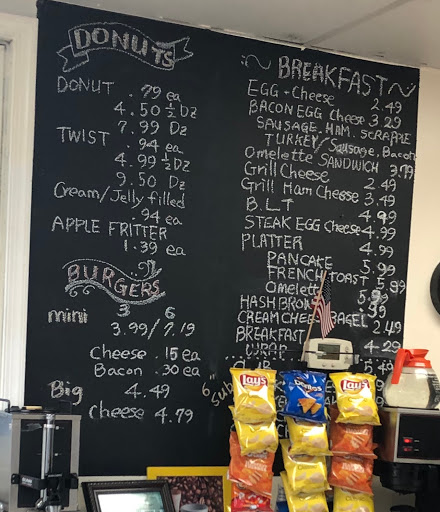 DONUTS
DONUT .79 ea
4.50 ½ Dz
7.99 Dz
TWIST .94 ea
4.99 ½ Dz
9.50 Dz
Cream/Jelly filled
.94 ea
APPLE FRITTER
1.39 ea
BURGERS
mini 3 6
3.99/7.19
Cheese .15 ea
Bacon .30 ea
Big 4.49
Cheese 4.79
~BREAKFAST~
EGG + Cheese 2.49
BACON EGG Cheese 3.29
SAUSAGE. HAM. SCRAPPLE
TURKEY/Sausage. Bacon
Omelette SANDWICH 3.79
Grill Cheese 2.49
Grill Ham Cheese 3.49
B.L.T 4.99
STEAK EGG Cheese 4.99
PLATTER 4.99
PANCAKE 5.99
FRENCH TOAST 5.99
Omelette 5.99
HASH BROWN
CREAM CHEESE BAGEL 2.49
BREAKFAST
WRAP 4.29
6" sub 5.49
Lay's
Doritos
Lay's